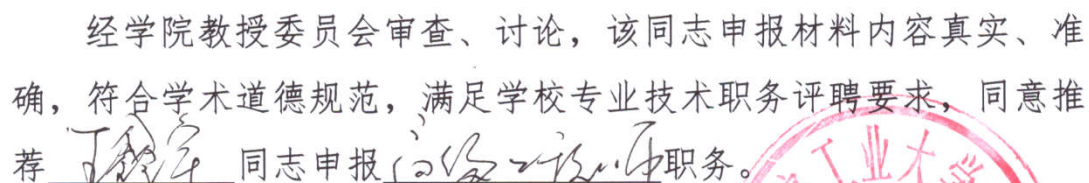 经学院教授委员会审查、讨论，该同志申报材料内容真实、准
确，符合学术道德规范，满足学校专业技术职务评聘要求，同意推
荐 同志申报高级工程师职务。
工业大学